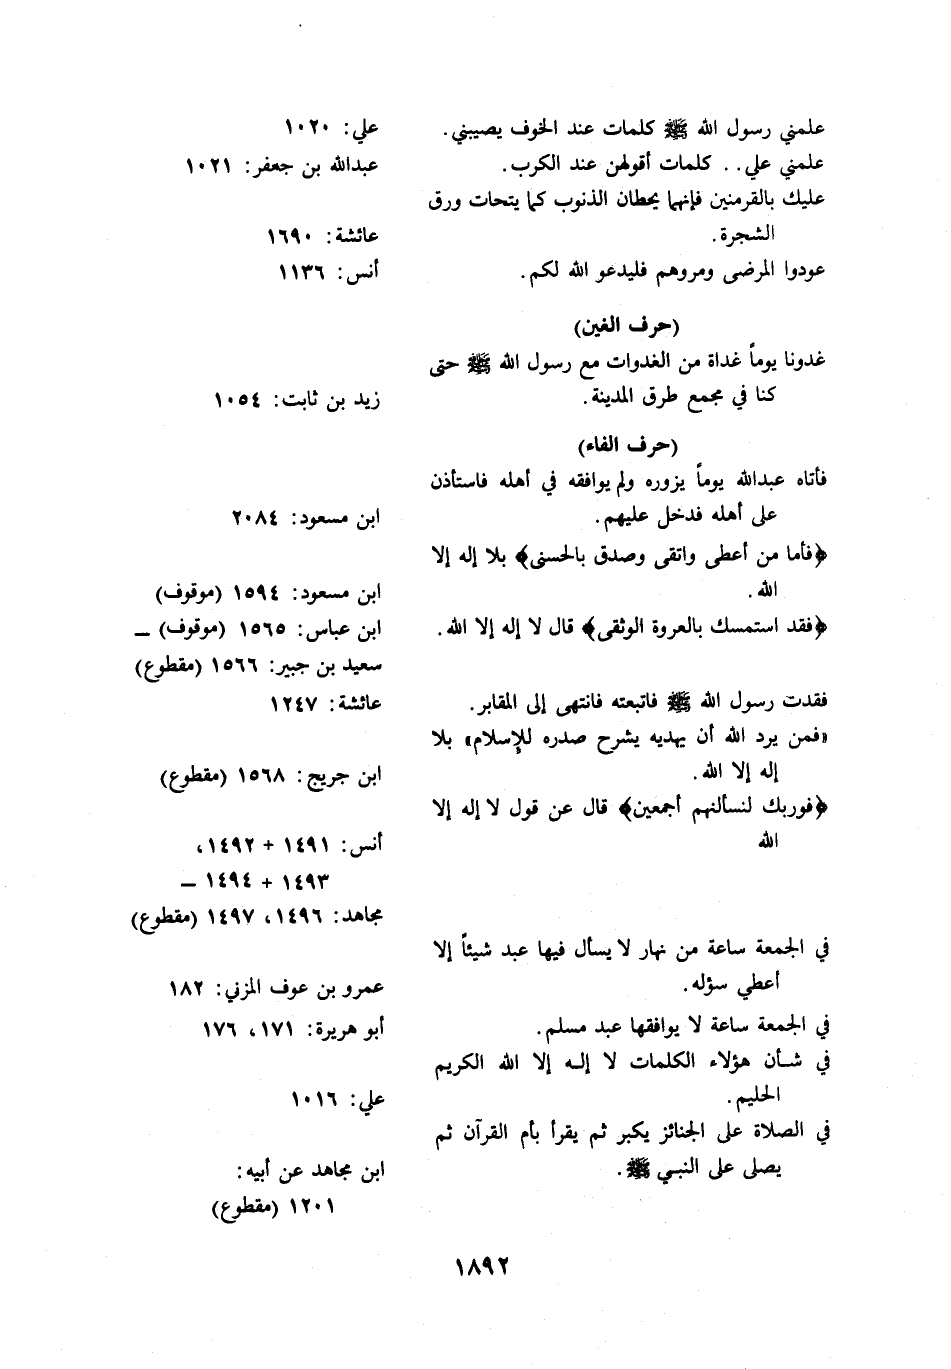 علمني رسول الله ﷺ كلمات عند الخوف يصيبني. علي: ١٠٢٠
علمني علي.. كلمات أقولهن عند الكرب. عبدالله بن جعفر: ١٠٢١
عليك بالقرمنين فإنهما يحطان الذنوب كما يتحات ورق
الشجرة. عائشة: ١٦٩٠
عودوا المرضى ومروهم فليدعو الله لكم. أنس: ١١٣٦
(حرف الغين)
غدونا يوماً غداة من الغدوات مع رسول الله ﷺ حتى
كنا في مجمع طرق المدينة. زيد بن ثابت: ١٠٥٤
(حرف الفاء)
فأتاه عبدالله يوماً يزوره ولم يوافقه في أهله فاستأذن
على أهله فدخل عليهم. ابن مسعود: ٢٠٨٤
﴿فأما من أعطى واتقى وصدق بالحسنى﴾ بلا إله إلا
الله. ابن مسعود: ١٥٩٤ (موقوف)
﴿فقد استمسك بالعروة الوثقى﴾ قال لا إله إلا الله. ابن عباس: ١٥٦٥ (موقوف) ــ
سعيد بن جبير: ١٥٦٦ (مقطوع)
فقدت رسول الله ﷺ فاتبعته فانتهى إلى المقابر. عائشة: ١٢٤٧
«فمن يرد الله أن يهديه يشرح صدره للإسلام» بلا
إله إلا الله. ابن جريج: ١٥٦٨ (مقطوع)
﴿فوربك لنسألنهم أجمعين﴾ قال عن قول لا إله إلا
الله أنس: ١٤٩١ + ١٤٩٢،
١٤٩٣ + ١٤٩٤ ــ
مجاهد: ١٤٩٦، ١٤٩٧ (مقطوع)
في الجمعة ساعة من نهار لا يسأل فيها عبد شيئاً إلا
أعطي سؤله. عمرو بن عوف المزني: ١٨٢
في الجمعة ساعة لا يوافقها عبد مسلم. أبو هريرة: ١٧١، ١٧٦
في شأن هؤلاء الكلمات لا إله إلا الله الكريم
الحليم. علي: ١٠١٦
في الصلاة على الجنائز يكبر ثم يقرأ بأم القرآن ثم
يصلى على النبي ﷺ. ابن مجاهد عن أبيه:
١٢٠١ (مقطوع)
١٨٩٢